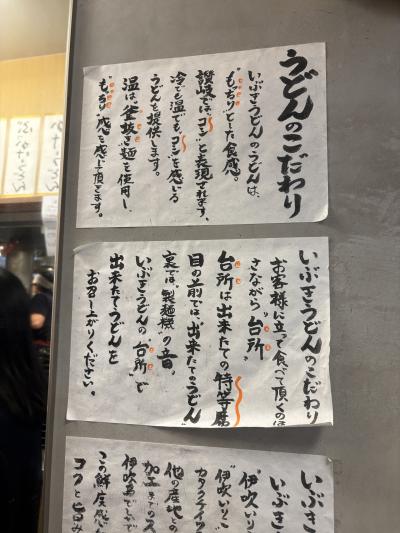 うどんのこだわり
いぶきうどんのうどんは、
"もちり"とした食感。
讃岐では"コシ"と表現されます。
冷でも温でも、"コシ"を感いる
うどんを提供します。
温は、"釜抜き"麺を使用し、
"もちり"感を感じ頂きます。
いぶきうどんのこだわり
お客様に立って食べて頂くのは
さながら"台所"
台所は出来たての特等席
目の前では、出来たてのうどん
裏では、"製麺機"の音。
いぶきうどんの"台所"で
出来たてうどんを
お召し上がりください。
いぶき
いぶき
"伊吹い
"伊吹いりこ
カタクチイワ
他の産地との
加工までのス
伊吹島で
この鮮度感
コクと旨み